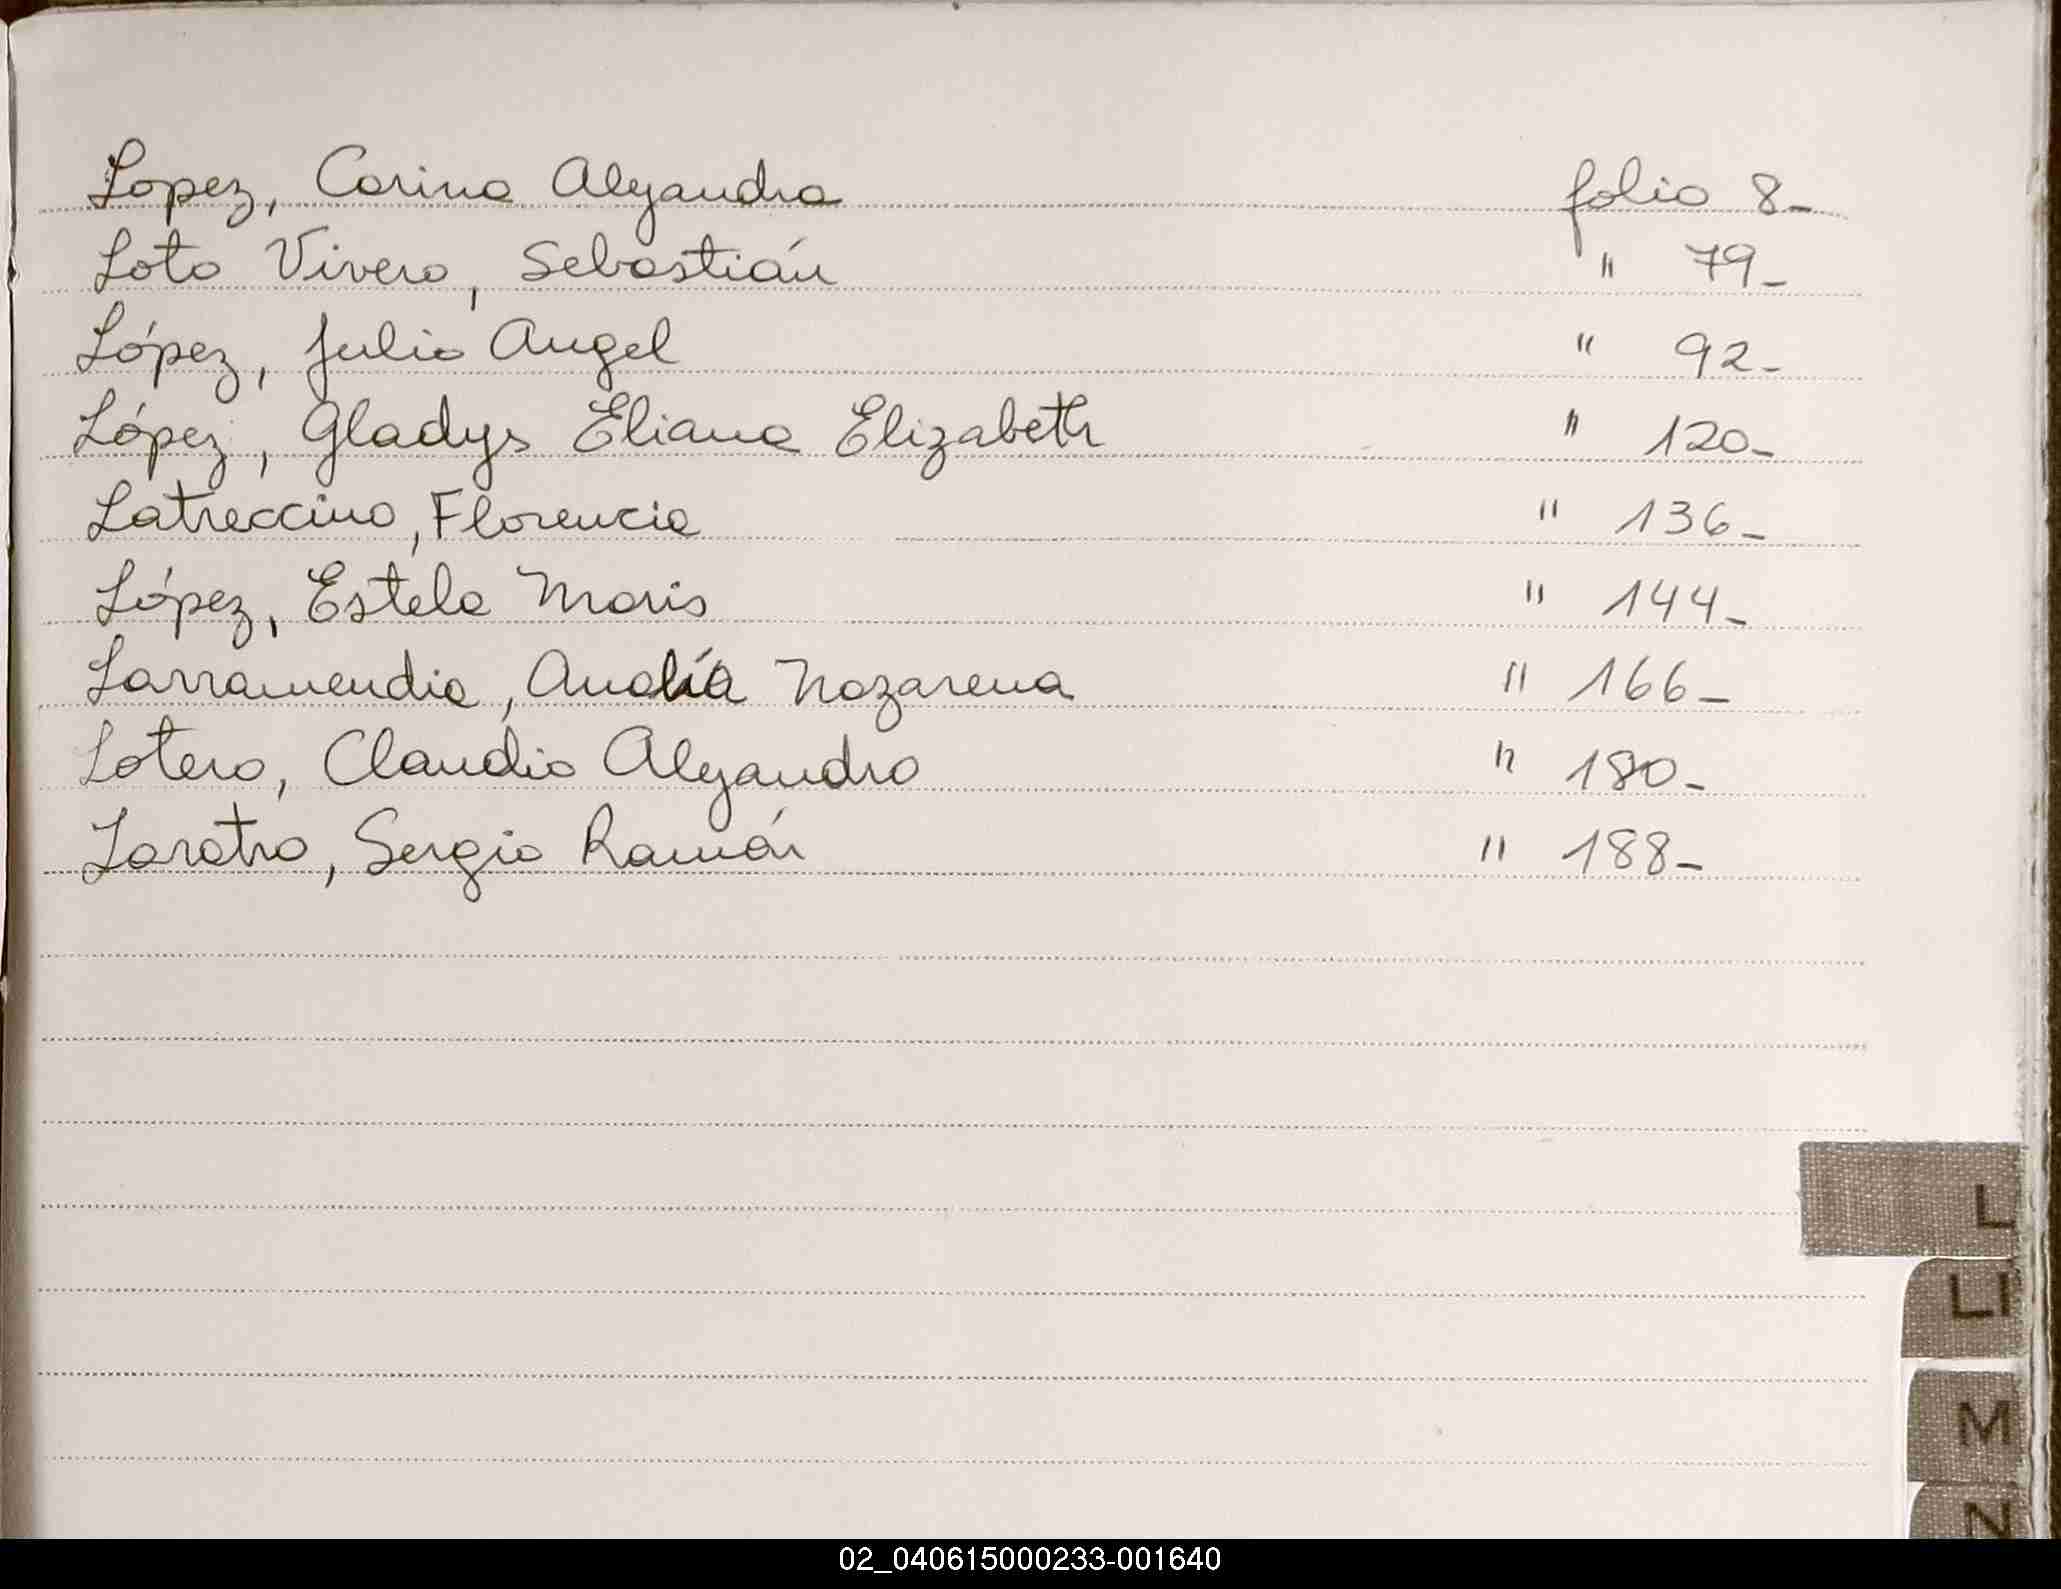 Lopez, Carina Alejandra folio 8-
Loto Vivero, Sebastián " 79-
López, Julio Angel " 92-
López, Gladys Eliana Elizabeth " 120-
Latreccino, Florencia " 136-
López, Estela Maris " 144-
Larramendia, Analía Nazarena " 166-
Lotero, Claudio Alejandro " 180-
Laratro, Sergio Ramón " 188-
L
Ll
M
N
02_040615000233-001640